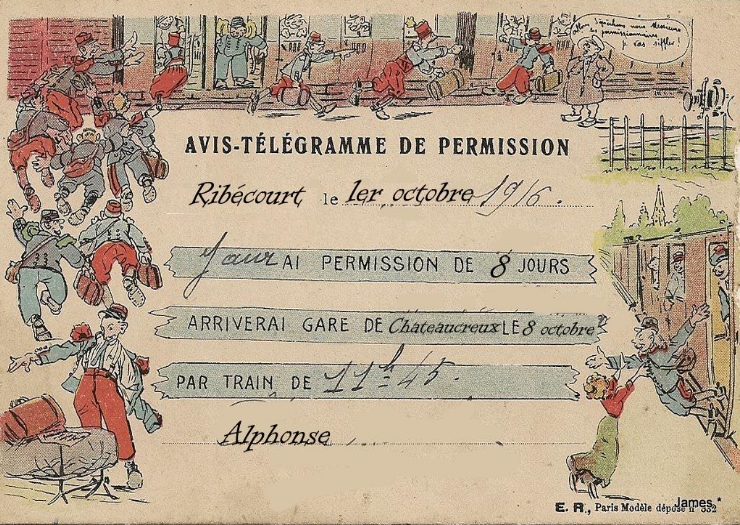 Allons Dépêchons nous Messieurs
les permissionnaires
p. las siffler !
AVIS-TÉLÉGRAMME DE PERMISSION
Ribécourt le 1er octobre 1916.
J'aurAI PERMISSION DE 8 JOURS
ARRIVERAI GARE DE Chateaucreux LE 8 octobre
PAR TRAIN DE 11h=45.
Alphonse
James *
E. R., Paris Modèle déposé n° 332